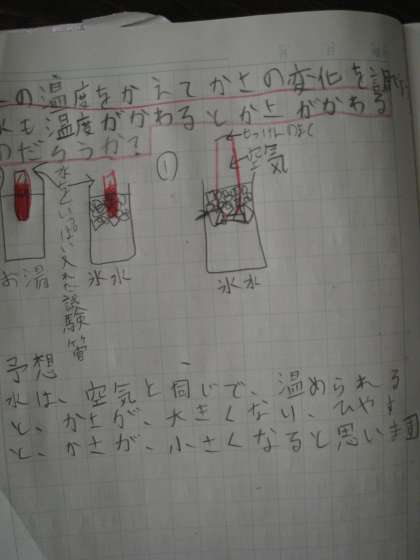 の温度をかえてかさの変化を調
水も温度がかわるとかさがかわる
のだろうか?
せっけんのまく
①
空気
水をいっぱい入れた試験管
お湯
氷水
氷水
予想
水は、空気と同じで、温められる
と、かさが、大きくなり、ひやす
と、かさが、小さくなると思います